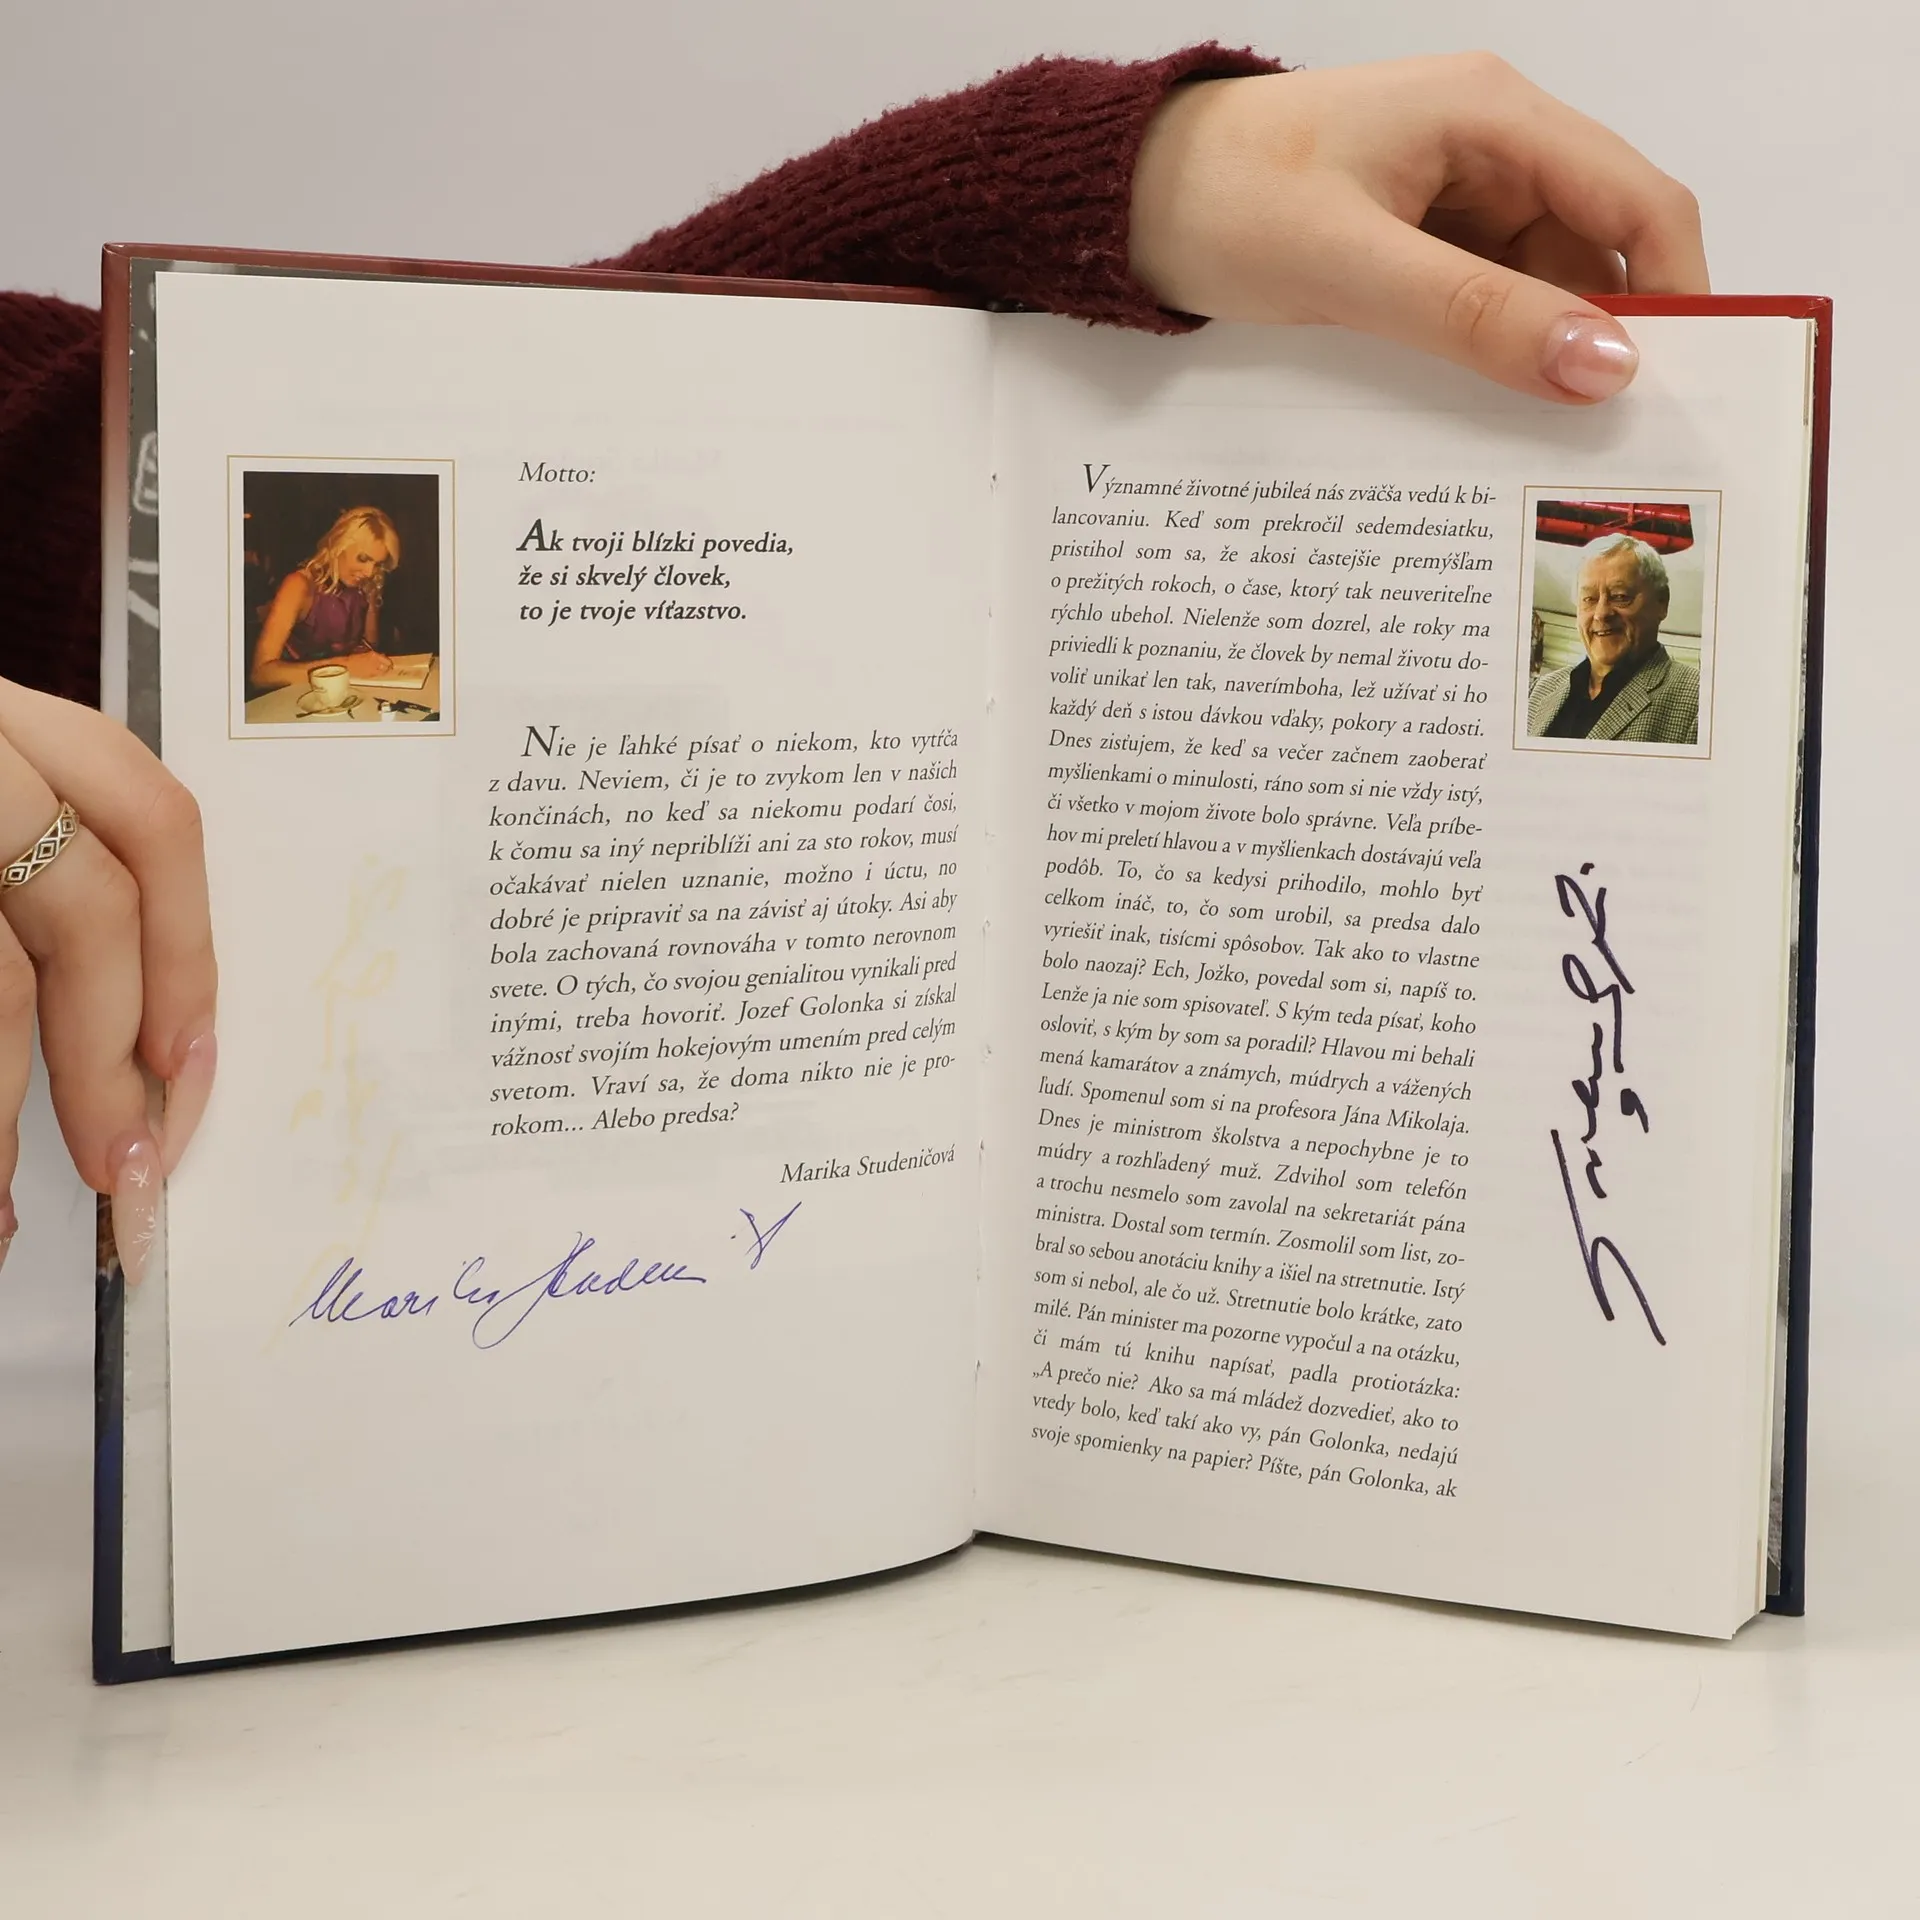 Motto:
Ak tvoji blízki povedia,
že si skvelý človek,
to je tvoje víťazstvo.
Nie je ľahké písať o niekom, kto vytŕča
z davu. Neviem, či je to zvykom len v našich
končinách, no keď sa niekomu podarí čosi,
k čomu sa iný nepriblíži ani za sto rokov, musí
očakávať nielen uznanie, možno i úctu, no
dobré je pripraviť sa na závisť aj útoky. Asi aby
bola zachovaná rovnováha v tomto nerovnom
svete. O tých, čo svojou genialitou vynikali pred
inými, treba hovoriť. Jozef Golonka si získal
vážnosť svojím hokejovým umením pred celým
svetom. Vraví sa, že doma nikto nie je pro-
rokom... Alebo predsa?
Marika Studeničová
Významné životné jubileá nás zväčša vedú k bi-
lancovaniu. Keď som prekročil sedemdesiatku,
pristihol som sa, že akosi častejšie premýšľam
o prežitých rokoch, o čase, ktorý tak neuveriteľne
rýchlo ubehol. Nielenže som dozrel, ale roky ma
priviedli k poznaniu, že človek by nemal životu do-
voliť unikať len tak, naverímboha, lež užívať si ho
každý deň s istou dávkou vďaky, pokory a radosti.
Dnes zisťujem, že keď sa večer začnem zaoberať
myšlienkami o minulosti, ráno som si nie vždy istý,
či všetko v mojom živote bolo správne. Veľa príbe-
hov mi preletí hlavou a v myšlienkach dostávajú veľa
podôb. To, čo sa kedysi prihodilo, mohlo byť
celkom ináč, to, čo som urobil, sa predsa dalo
vyriešiť inak, tisícmi spôsobov. Tak ako to vlastne
bolo naozaj? Ech, Jožko, povedal som si, napíš to.
Lenže ja nie som spisovateľ. S kým teda písať, koho
osloviť, s kým by som sa poradil? Hlavou mi behali
mená kamarátov a známych, múdrych a vážených
ľudí. Spomenul som si na profesora Jána Mikolaja.
Dnes je ministrom školstva a nepochybne je to
múdry a rozhľadený muž. Zdvihol som telefón
a trochu nesmelo som zavolal na sekretariát pána
ministra. Dostal som termín. Zosmolil som list, zo-
bral so sebou anotáciu knihy a išiel na stretnutie. Istý
som si nebol, ale čo už. Stretnutie bolo krátke, zato
milé. Pán minister ma pozorne vypočul a na otázku,
či mám tú knihu napísať, padla protiotázka:
„A prečo nie? Ako sa má mládež dozvedieť, ako to
vtedy bolo, keď takí ako vy, pán Golonka, nedajú
svoje spomienky na papier? Píšte, pán Golonka, ak